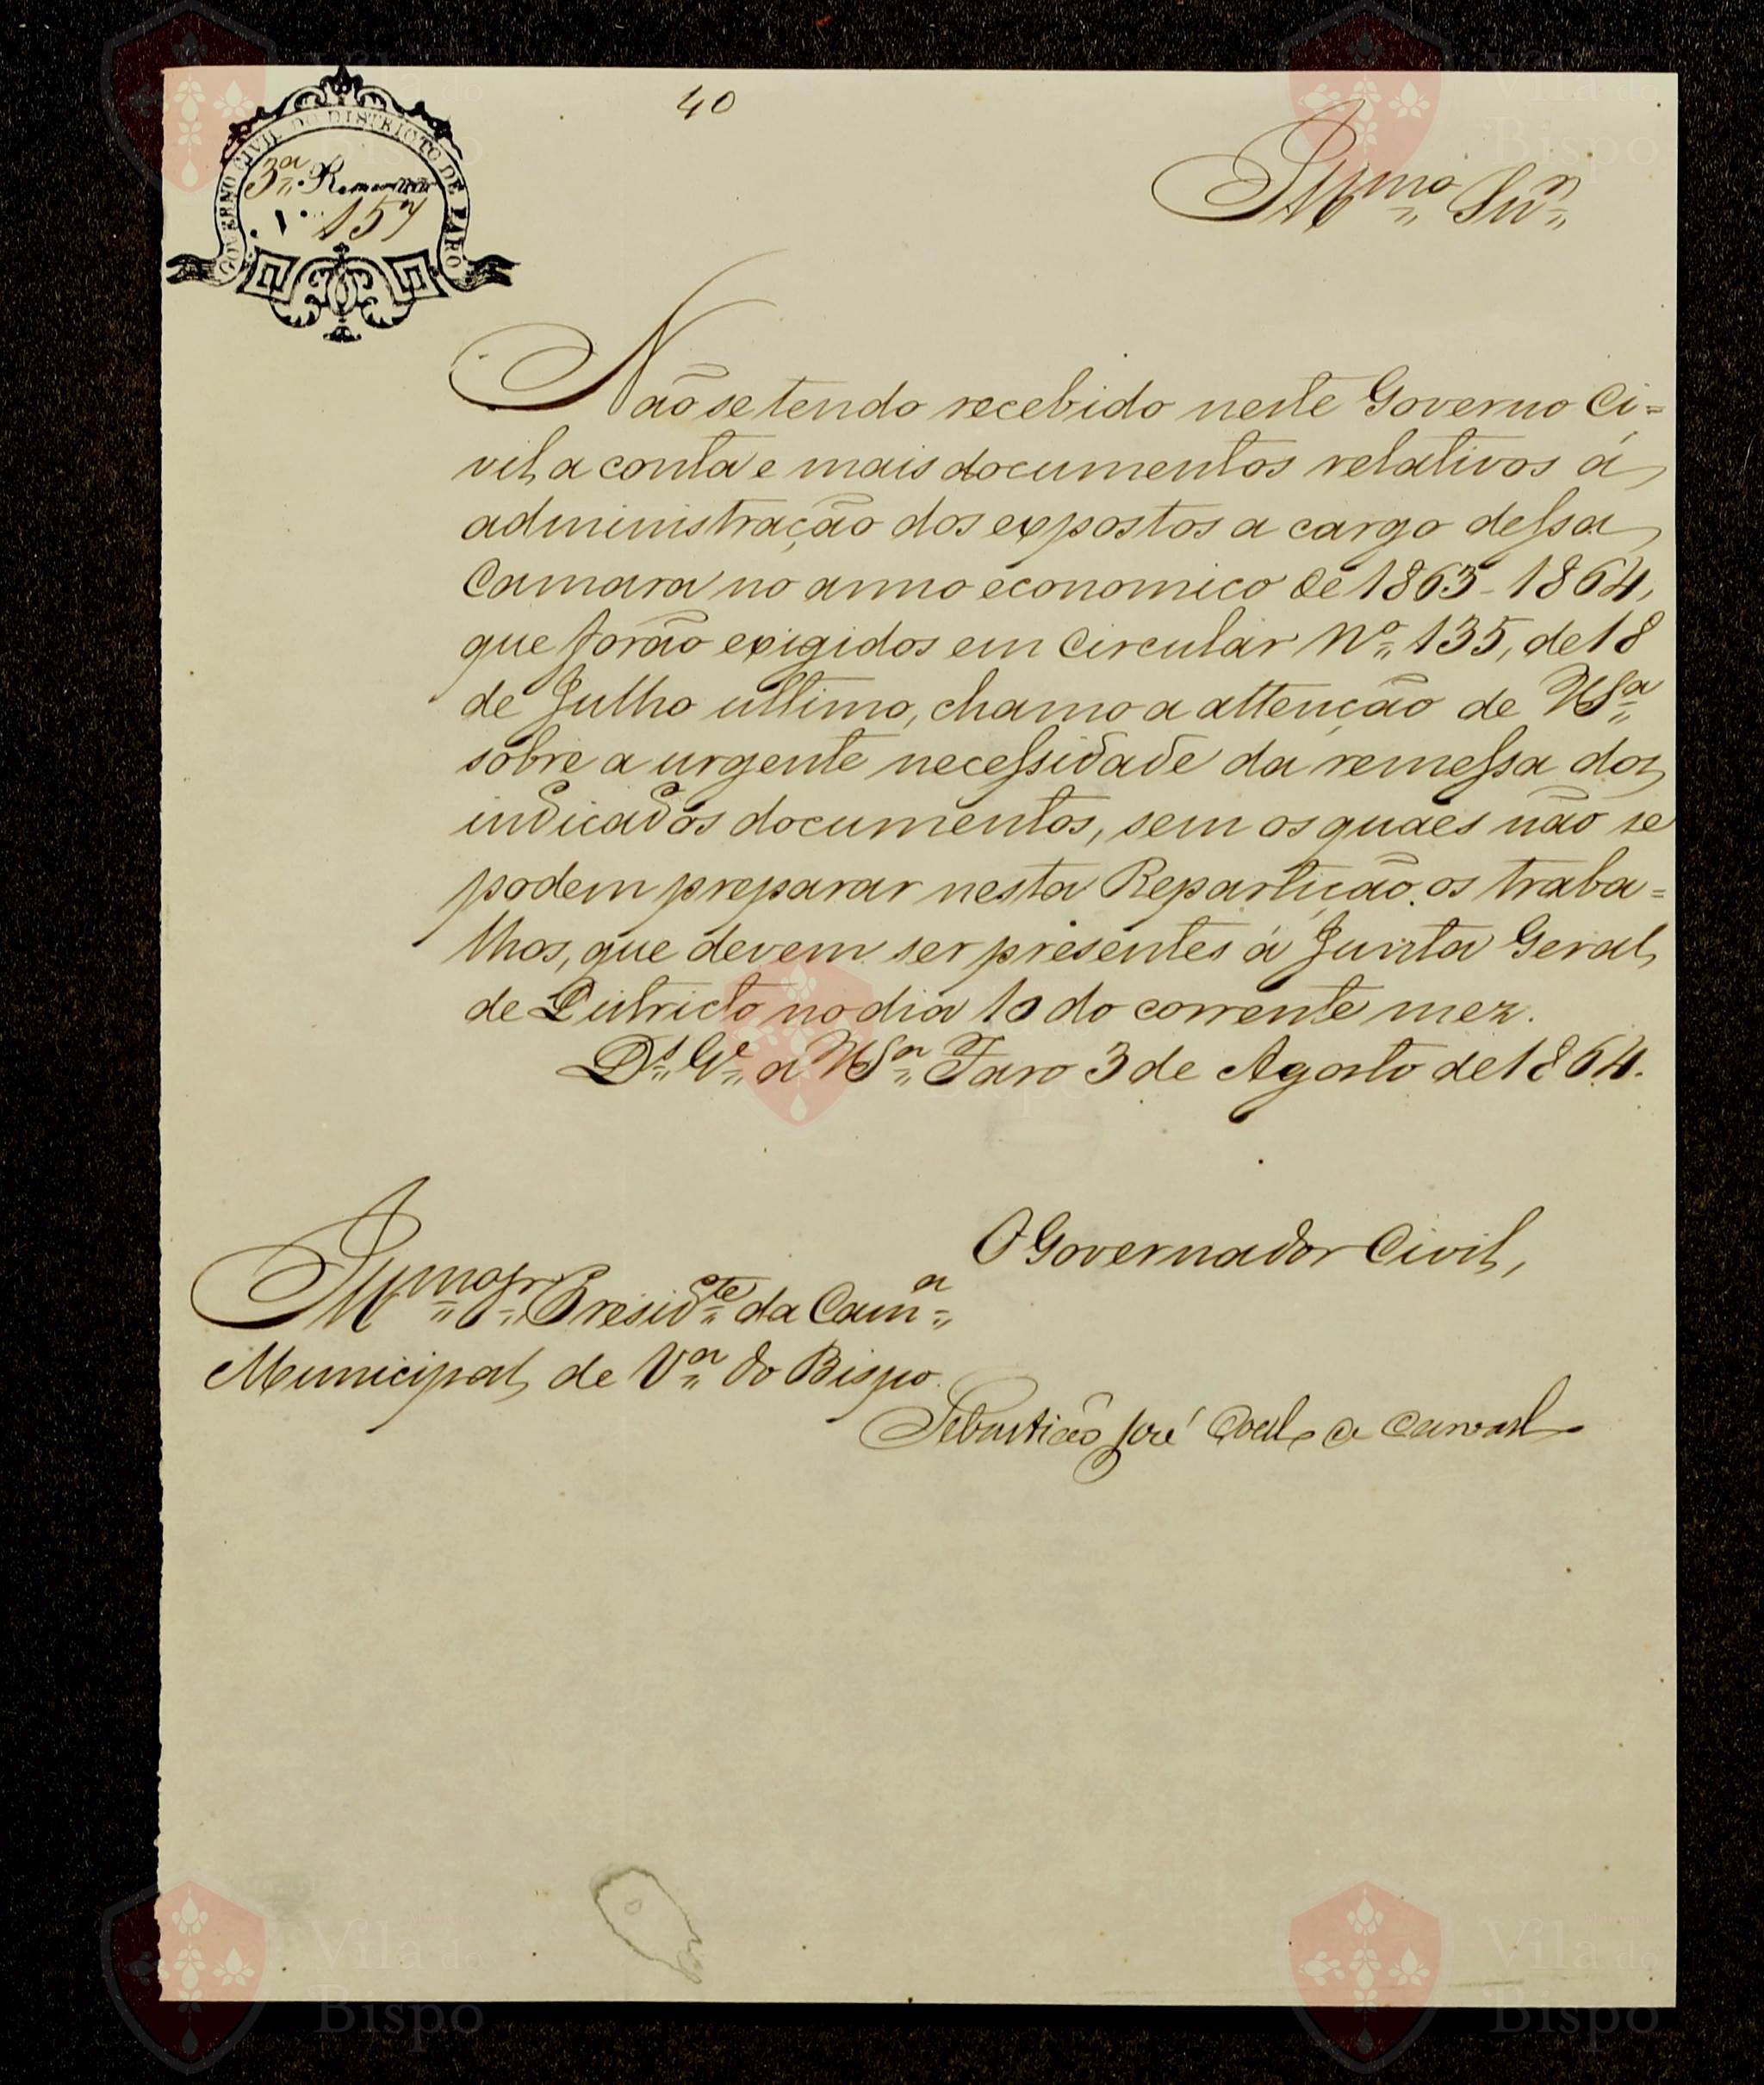 40
GOVERNO CIVIL DO DISTRICTO DE FARO
3ª Repartição
Nº 157
Illmo Snr
Não se tendo recebido neste Governo Ci=
vil a conta e mais documentos relativos á
administração dos expostos a cargo dessa
Camara no anno economico de 1863-1864,
que forão exigidos em Circular Nº 135, de 18
de Julho ultimo, chamo a attenção de VSª
sobre a urgente necessidade da remessa dos
indicados documentos, sem os quaes não se
podem preparar nesta Repartição os traba=
lhos, que devem ser presentes á Junta Geral
de Districto no dia 10 do corrente mez.
Ds Ge a VSª Faro 3 de Agosto de 1864.
O Governador Civil,
Illmo Sr Presidte da Camª
Municipal de Vª do Bispo.
Sebastião José Coelho de Carvalho
Vila do
Bispo